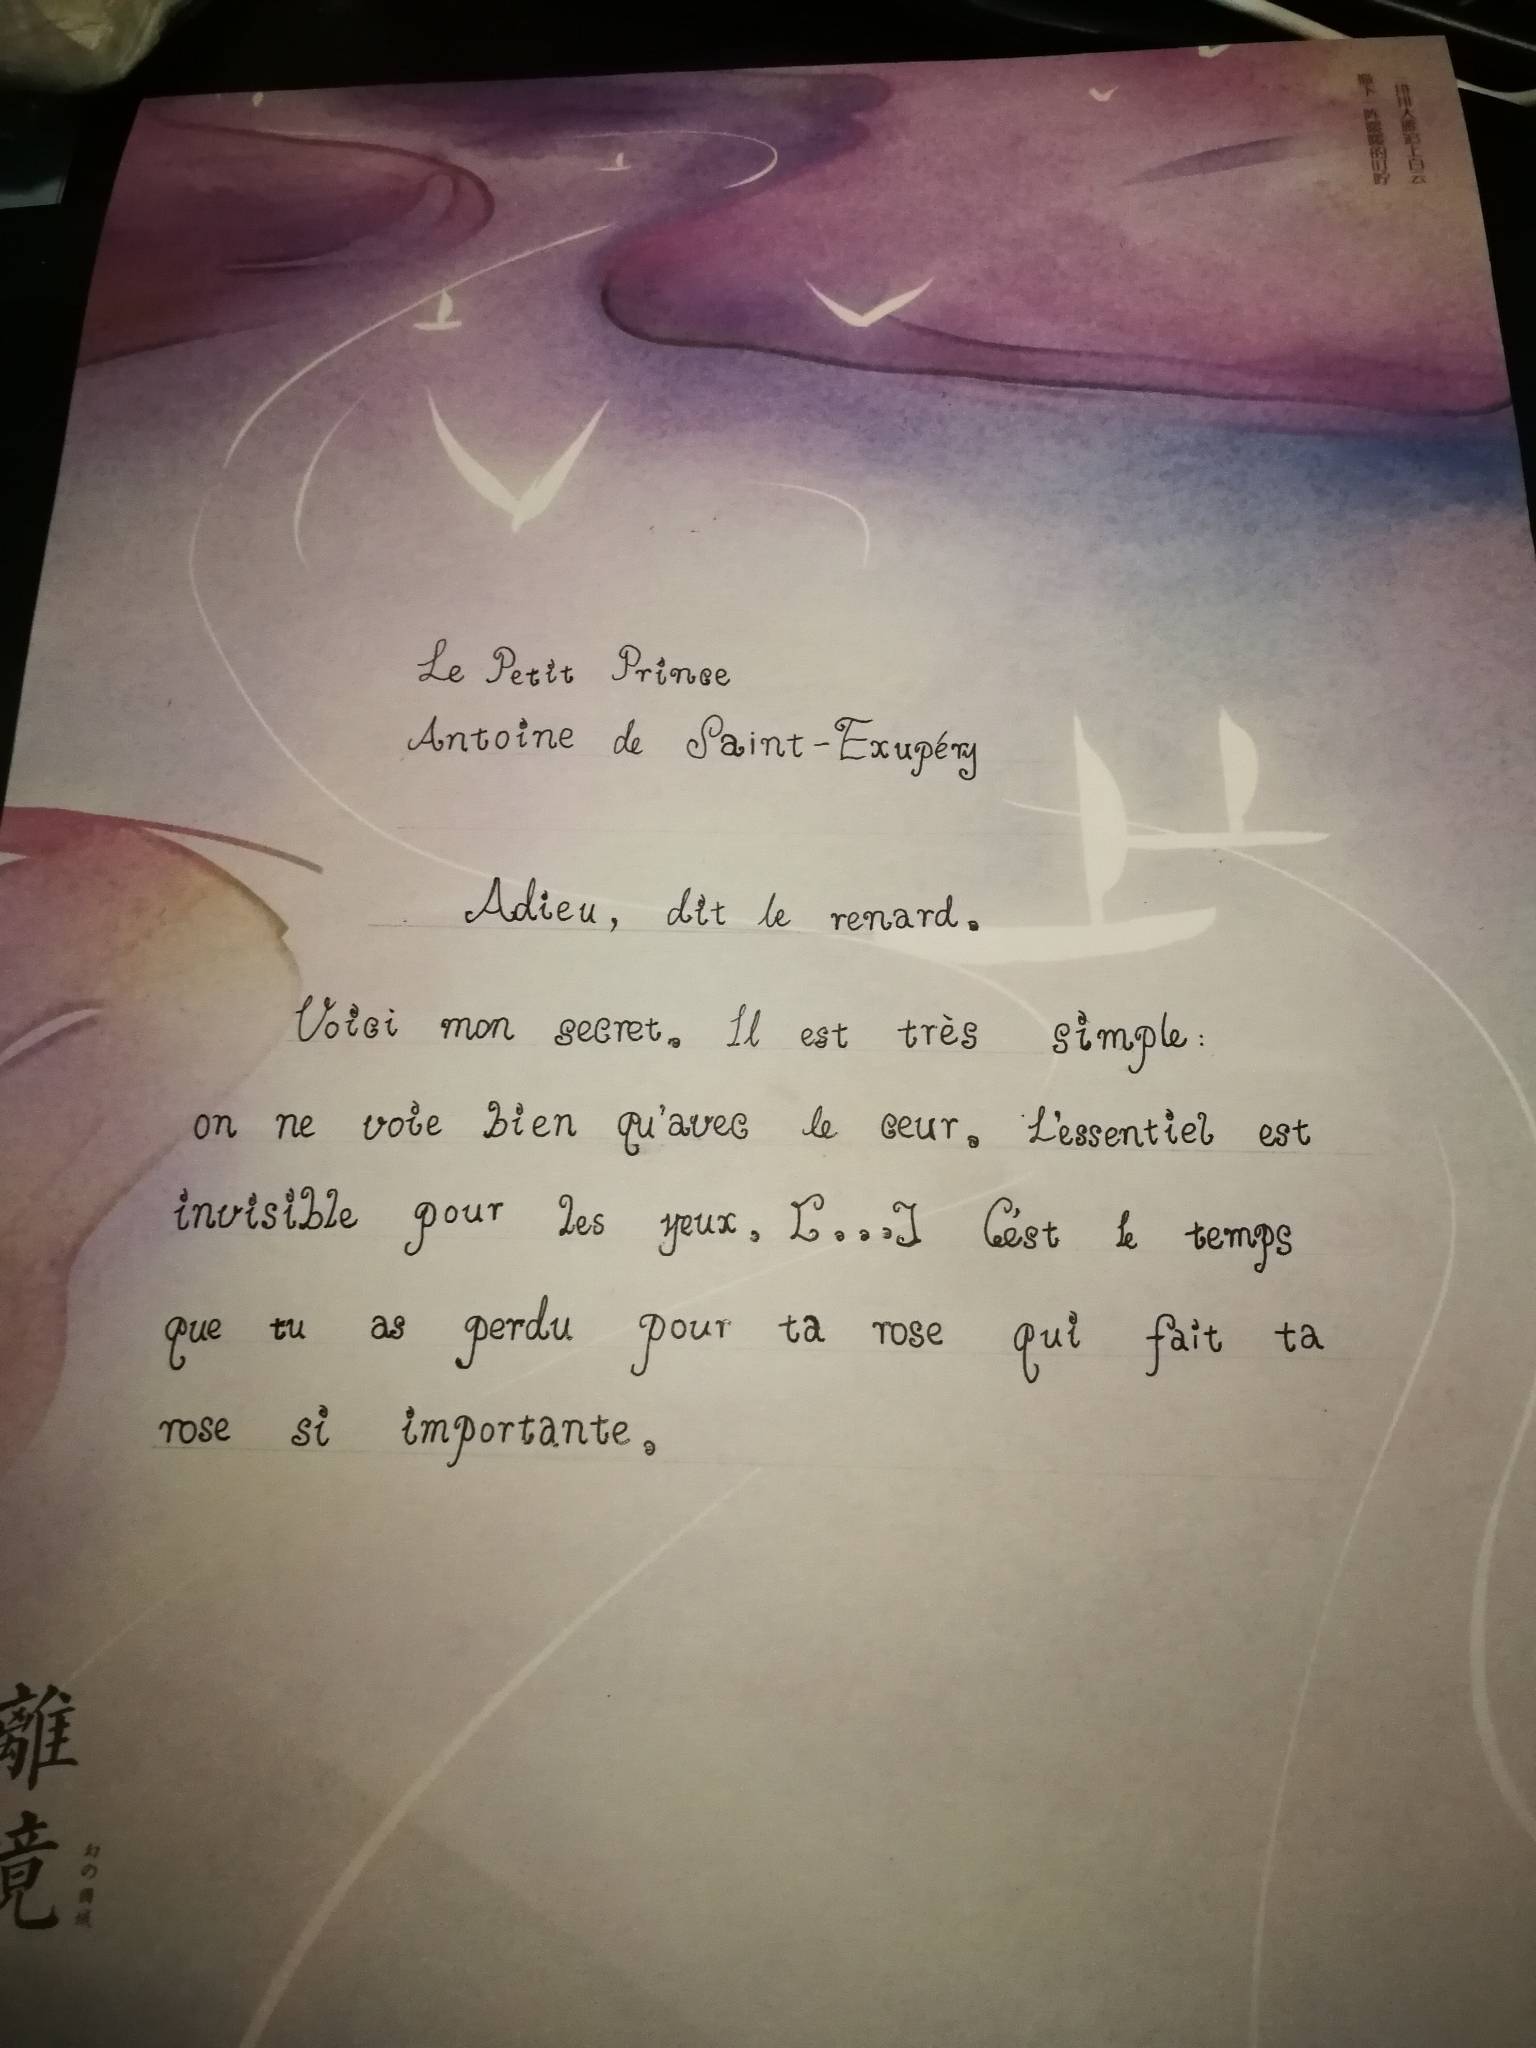 Le Petit Prince
Antoine de Saint-Exupéry
Adieu, dit le renard.
Voici mon secret. Il est très simple:
on ne voie bien qu'avec le ceur. L'essentiel est
invisible pour les yeux. [...] C'est le temps
que tu as perdu pour ta rose qui fait ta
rose si importante.
離
境